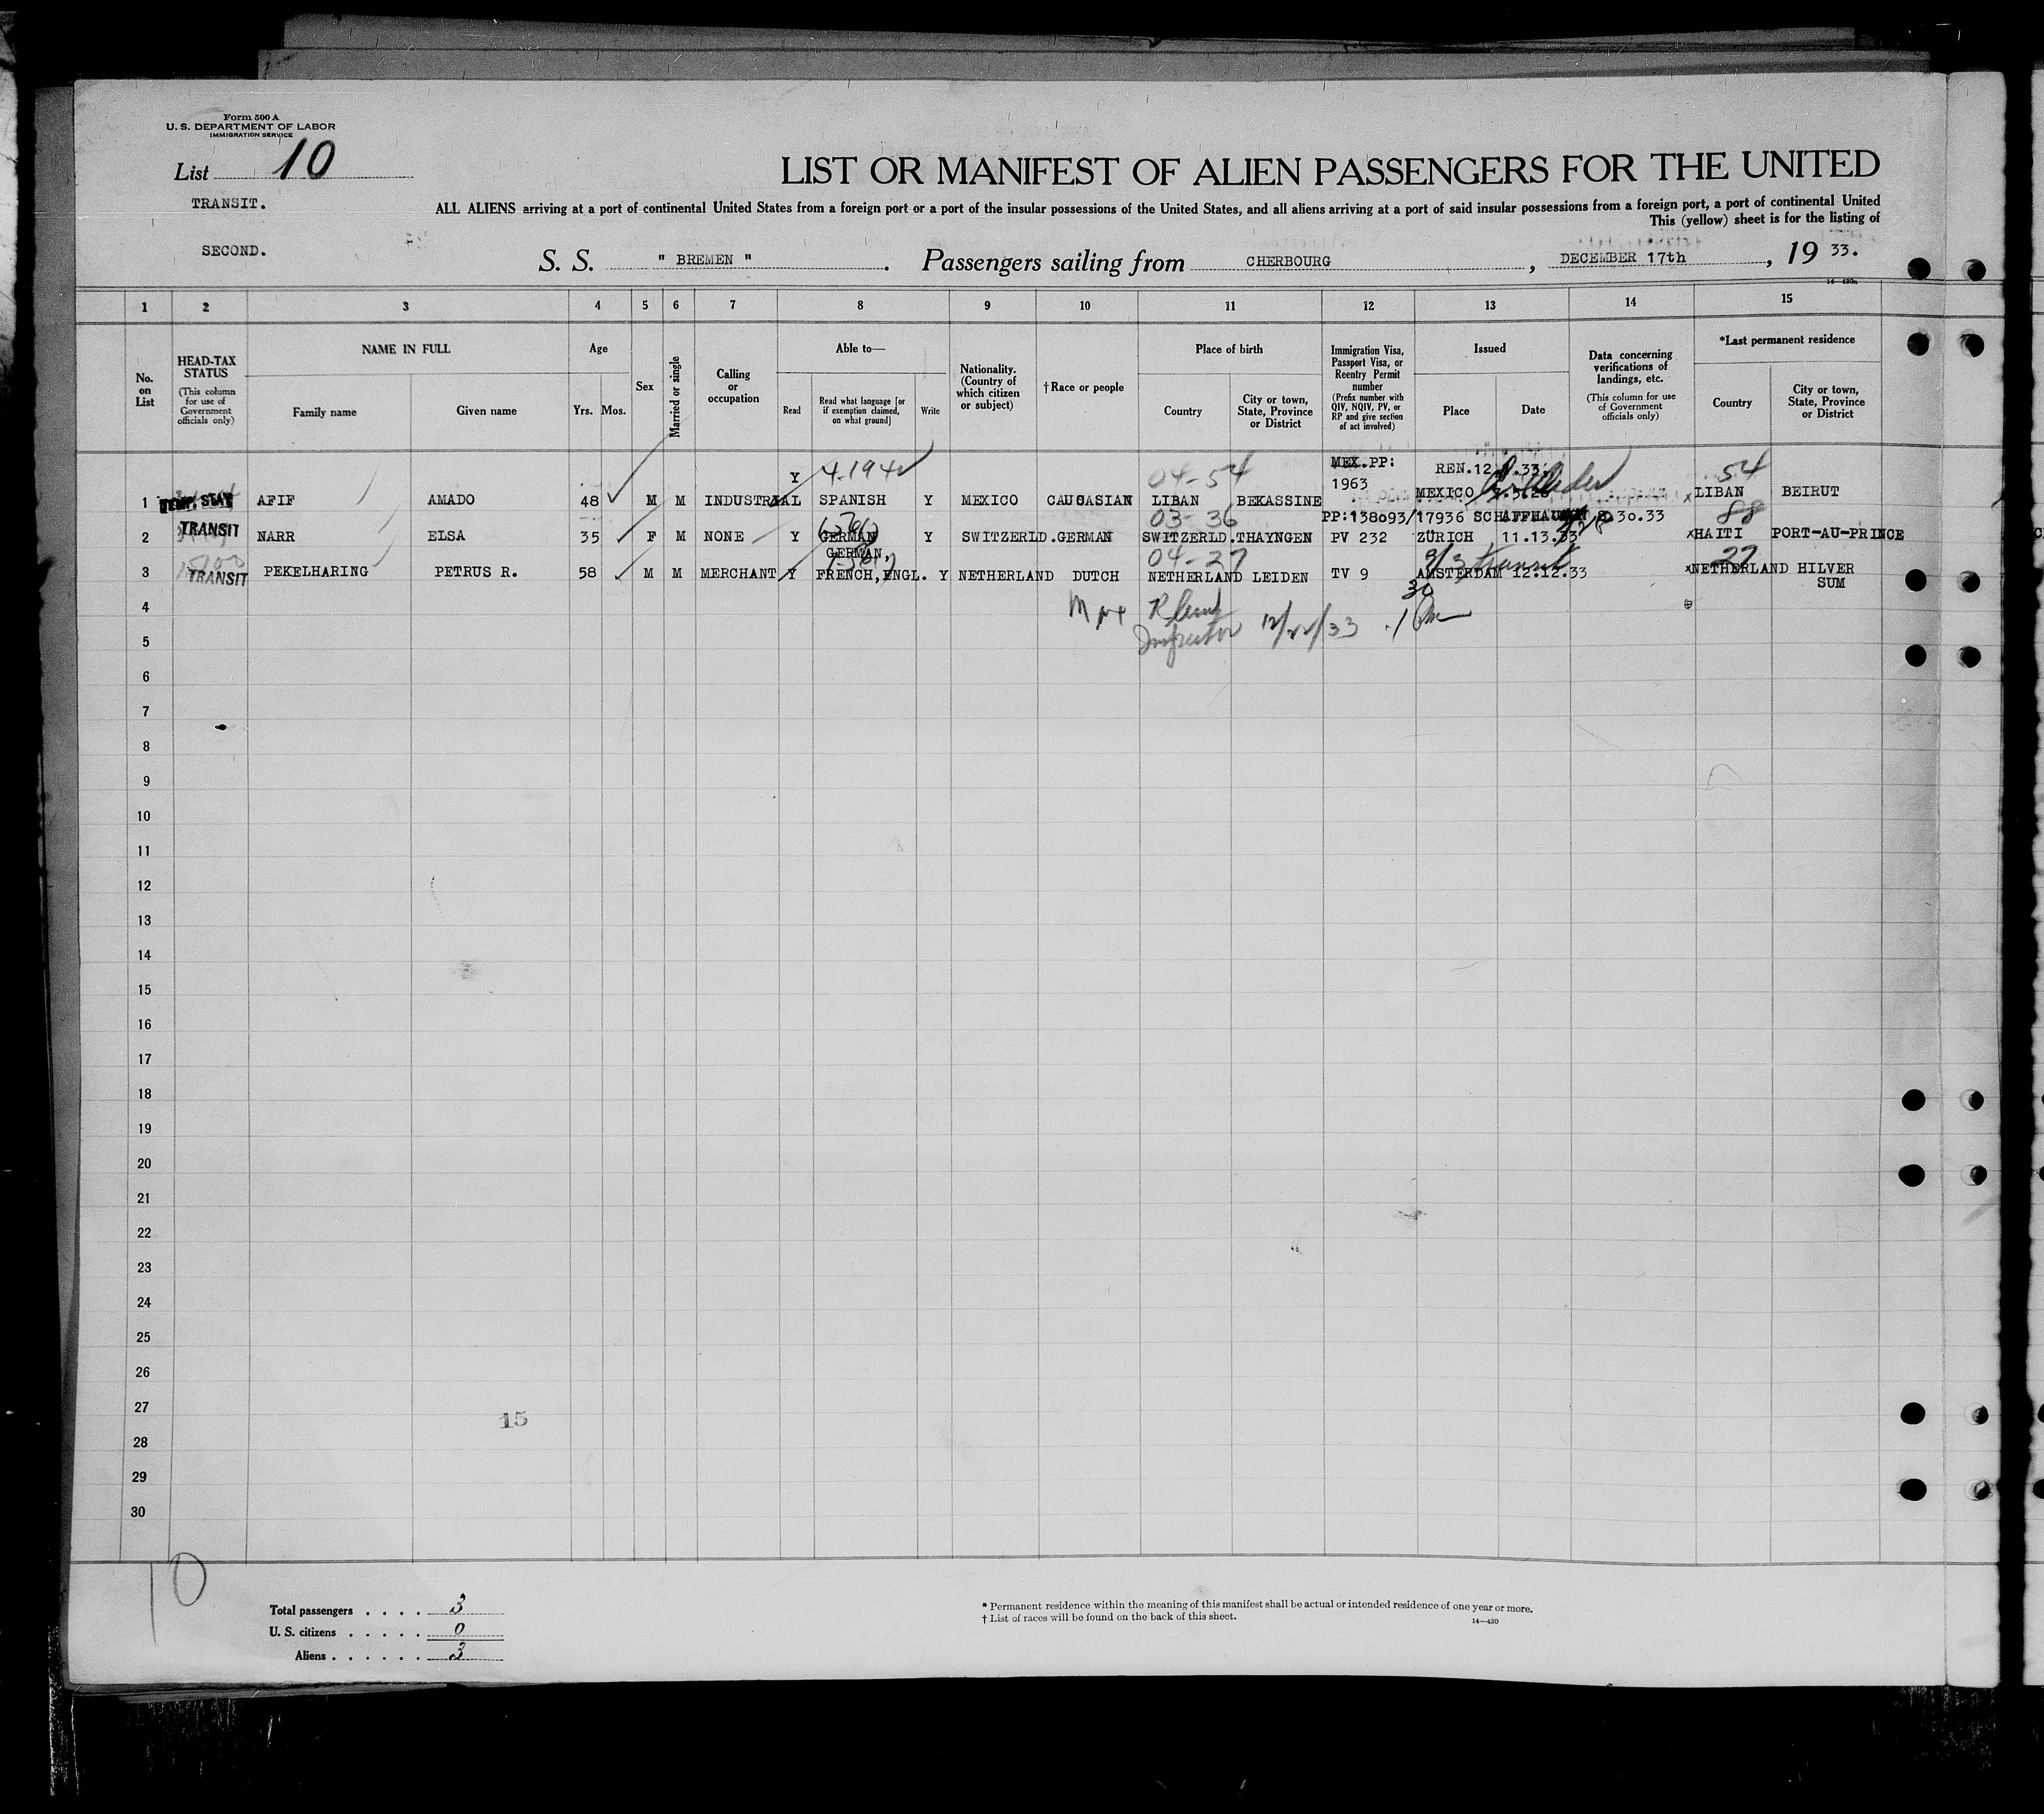 Form 500 A
U. S. DEPARTMENT OF LABOR
IMMIGRATION SERVICE
List 10
TRANSIT.
SECOND.
LIST OR MANIFEST OF ALIEN PASSENGERS FOR THE UNITED
ALL ALIENS arriving at a port of continental United States from a foreign port or a port of the insular possessions of the United States, and all aliens arriving at a port of said insular possessions from a foreign port, a port of continental United
This (yellow) sheet is for the listing of
S. S. " BREMEN " . Passengers sailing from CHERBOURG , DECEMBER 17th , 19 33.
14—430a
1 2 3 4 5 6 7 8 9 10 11 12 13 14 15
No. on List
HEAD-TAX STATUS (This column for use of Government officials only)
NAME IN FULL
Family name
Given name
Age
Yrs. Mos.
Sex
Married or single
Calling or occupation
Able to—
Read
Read what language [or if exemption claimed, on what ground]
Write
Nationality. (Country of which citizen or subject)
† Race or people
Place of birth
Country
City or town, State, Province or District
Immigration Visa, Passport Visa, or Reentry Permit number (Prefix number with QIV, NQIV, PV, or RP and give section of act involved)
Issued
Place
Date
Data concerning verifications of landings, etc. (This column for use of Government officials only)
*Last permanent residence
Country
City or town, State, Province or District
Y 4.194 04-54 MEX.PP: 1963 REN.12 .33. 54
1 TEMP. STAY AFIF AMADO 48 M M INDUSTRIAL SPANISH Y MEXICO CAUCASIAN LIBAN BEKASSINE MEXICO x LIBAN BEIRUT
03-36 PP:138093/17936 SCHAFFHAUSEN 8.30.33 88
2 TRANSIT NARR ELSA 35 F M NONE Y GERMAN Y SWITZERLD. GERMAN SWITZERLD. THAYNGEN PV 232 ZÜRICH 11.13.33 x HAITI PORT-AU-PRINCE
GERMAN, 04-27 9/3 transit 27
3 TRANSIT PEKELHARING PETRUS R. 58 M M MERCHANT Y FRENCH, ENGL. Y NETHERLAND DUTCH NETHERLAND LEIDEN TV 9 AMSTERDAM 12.12.33 x NETHERLAND HILVER
SUM
30
4
Inspector 12/22/33
5
6
7
8
9
10
11
12
13
14
15
16
17
18
19
20
21
22
23
24
25
26
27
15
28
29
30
10
Total passengers . . . . 3
U. S. citizens . . . . . 0
Aliens . . . . . . 3
* Permanent residence within the meaning of this manifest shall be actual or intended residence of one year or more.
† List of races will be found on the back of this sheet.
14—430